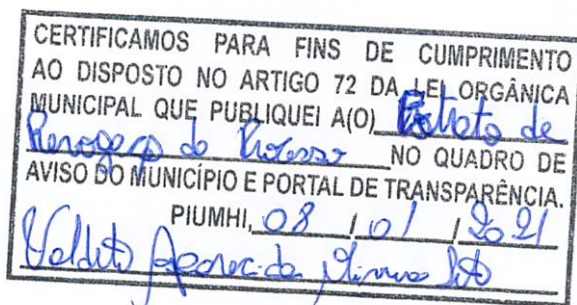 CERTIFICAMOS PARA FINS DE CUMPRIMENTO
AO DISPOSTO NO ARTIGO 72 DA LEI ORGÂNICA
MUNICIPAL QUE PUBLIQUEI A(O) Extrato de
Revogação do Processo NO QUADRO DE
AVISO DO MUNICÍPIO E PORTAL DE TRANSPARÊNCIA.
PIUMHI, 08 / 01 / 2021